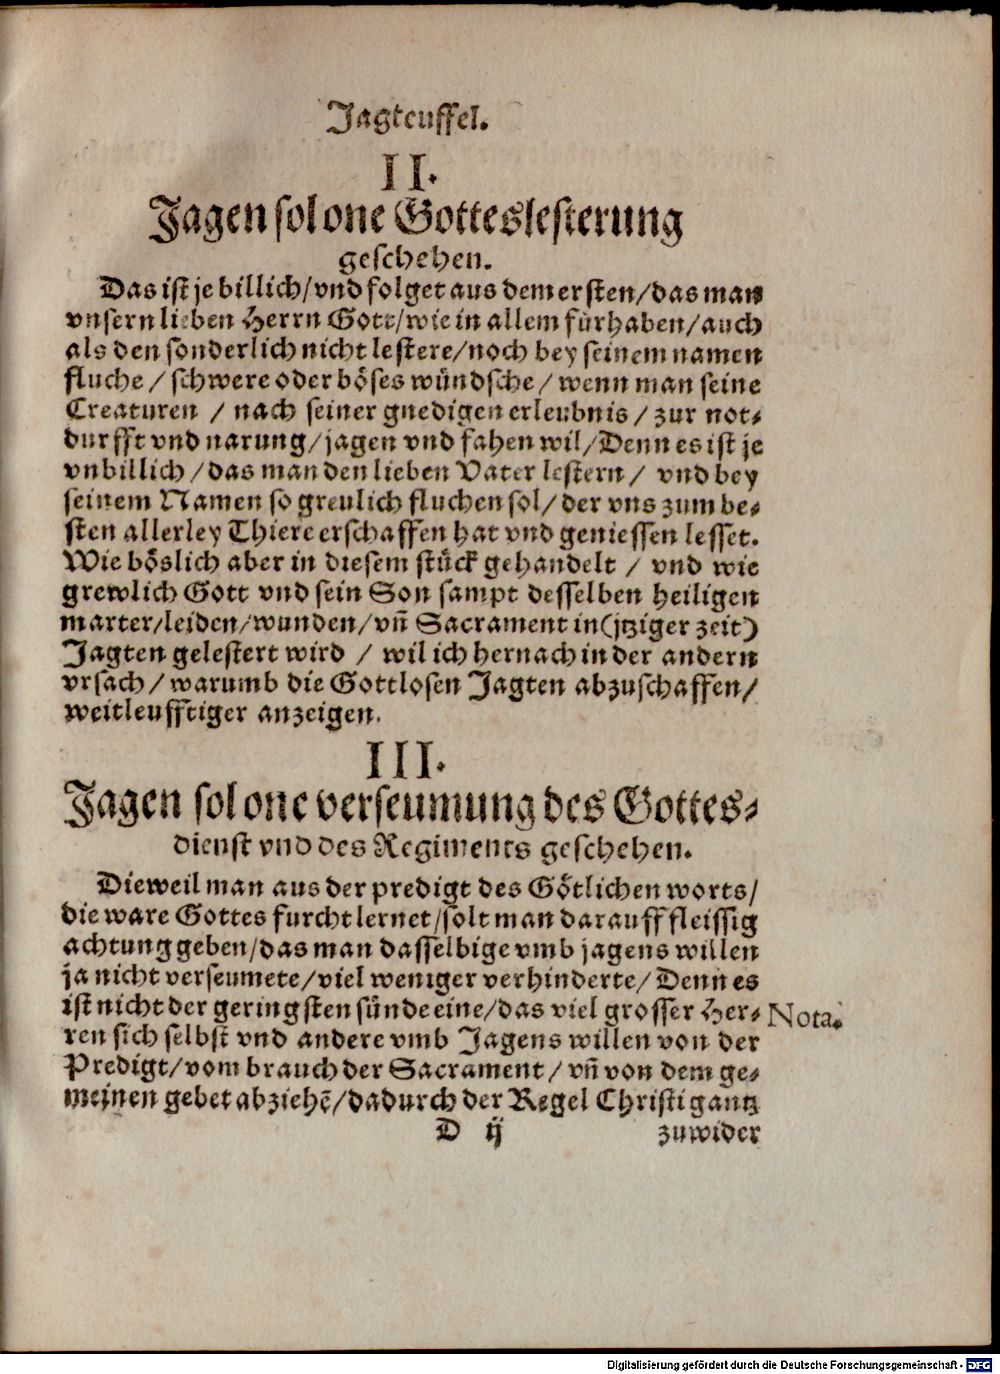 Jagteuffel.
II.
Jagen sol one Gotteslesterung
geschehen.
Das ist je billich/vnd folget aus dem ersten/das man
vnsern lieben Herrn Gott/wie in allem fürhaben/auch
als den sonderlich nicht lestere/noch bey seinem namen
fluche/schwere oder böses wündsche/wenn man seine
Creaturen / nach seiner gnedigen erleubnis/zur not-
durfft vnd narung/jagen vnd fahen wil/Denn es ist je
vnbillich/das man den lieben Vater lestern/ vnd bey
seinem Namen so greulich fluchen sol/der vns zum be-
sten allerley Thiere erschaffen hat vnd geniessen lesset.
Wie böslich aber in diesem stück gehandelt / vnd wie
grewlich Gott vnd sein Son sampt desselben heiligen
marter/leiden/wunden/vñ Sacrament in(jtziger zeit)
Jagten gelestert wird / wil ich hernach in der andern
vrsach/warumb die Gottlosen Jagten abzuschaffen/
weitleufftiger anzeigen.
III.
Jagen sol one verseumung des Gottes-
dienst vnd des Regiments geschehen.
Dieweil man aus der predigt des Götlichen worts/
die ware Gottes furcht lernet/solt man darauff fleissig
achtung geben/das man dasselbige vmb jagens willen
ja nicht verseumete/viel weniger verhinderte/Denn es
ist nicht der geringsten sünde eine/das viel grosser Her-
ren sich selbst vnd andere vmb Jagens willen von der
Predigt/vom brauch der Sacrament/vñ von dem ge-
meinen gebet abziehẽ/dadurch der Regel Christi gantz
Nota.
D ij
zuwider
Digitalisierung gefördert durch die Deutsche Forschungsgemeinschaft - DFG